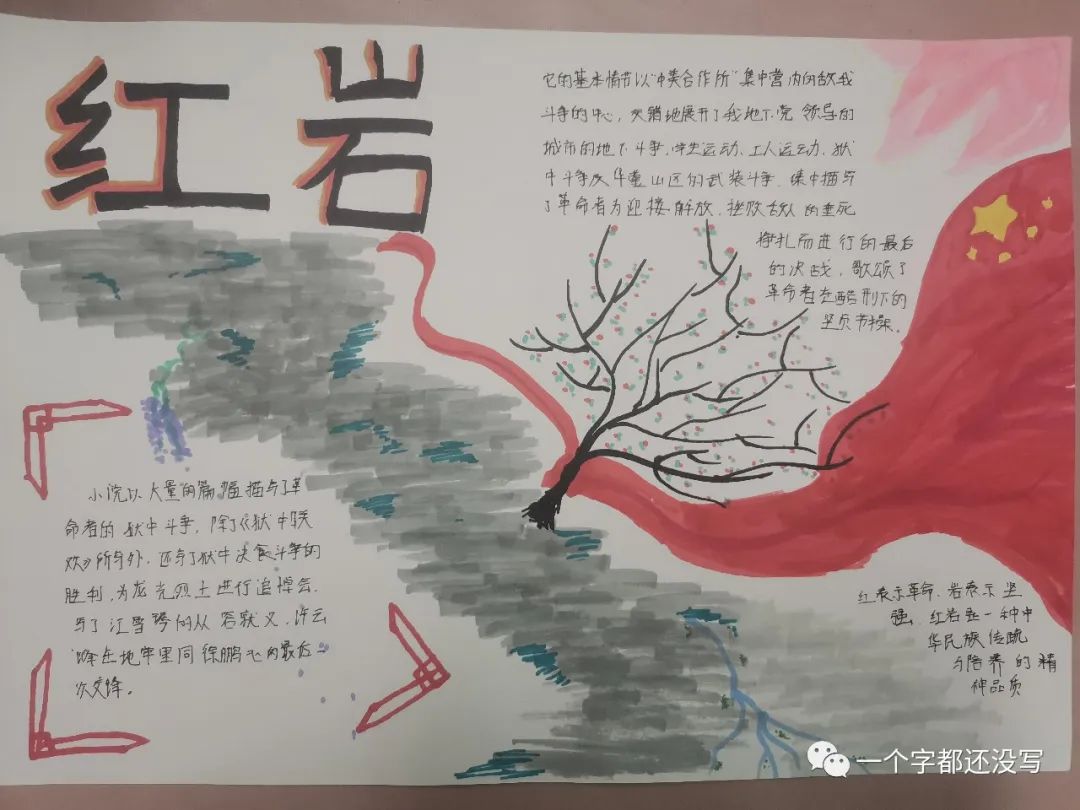 红岩
它的基本情节以"中美合作所"集中营内的敌我
斗争的中心，大稍地展开了我地下党 领导的
城市的地下斗争、学生运动、工人运动、狱
中斗争及华蓥山区的武装斗争，集中描写
了革命者为迎接解放、挫败敌人的垂死
挣扎而进行的最后
的决战，歌颂了
革命者在酷刑下的
坚贞节操。
小说以大量的篇幅描写了革
命者的狱中斗争，除了《狱中联
欢》所写外，还写了狱中决食斗争的
胜利，为龙光烈士进行追悼会，
写了江雪琴的从容就义，许云
峰在地牢里同徐鹏飞的最后一
次交锋。
红表示革命，岩表示坚
强，红岩是一种中
华民族传统
与培养的精
神品质
一个字都还没写